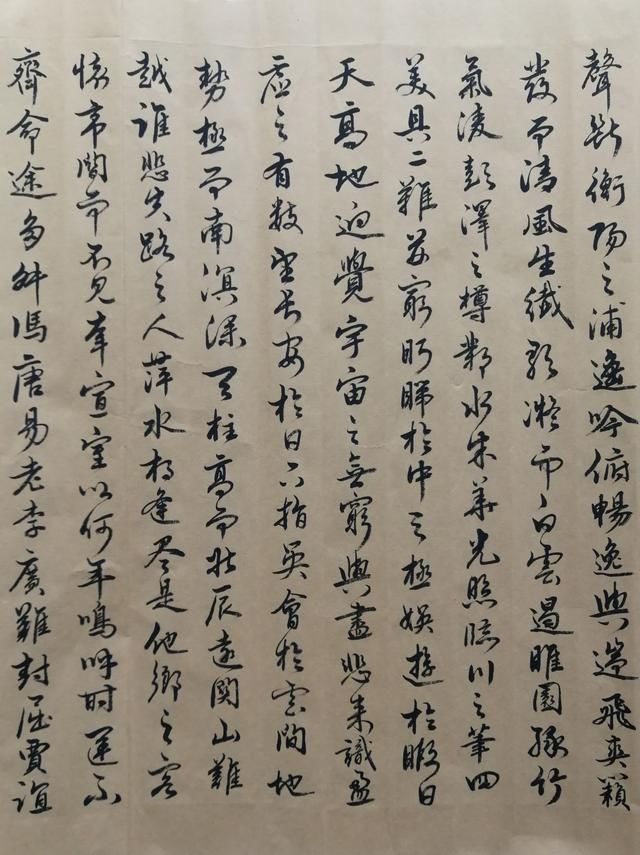 聲斷衡陽之浦遙吟俯暢逸興遄飛爽籟
發而清風生纖歌凝而白雲遏睢園綠竹
氣淩彭澤之樽鄴水朱華光照臨川之筆四
美具二難並窮眄睇於中天極娛遊於暇日
天高地迥覺宇宙之無窮興盡悲來識盈
虛之有數望長安於日下指吳會於雲間地
勢極而南溟深天柱高而北辰遠關山難
越誰悲失路之人萍水相逢盡是他鄉之客
懷帝閽而不見奉宣室以何年嗚呼時運不
齊命途多舛馮唐易老李廣難封屈賈誼